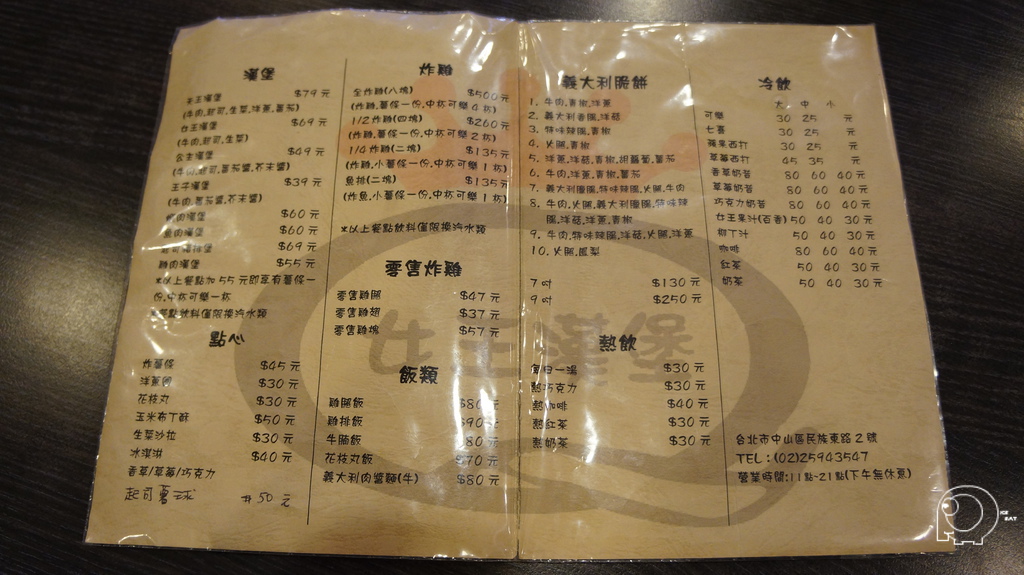 漢堡
女王漢堡 $79 元
(牛肉,起司,生菜,洋蔥,蕃茄)
女王漢堡 $69 元
(牛肉,起司,生菜)
漢堡 $49 元
(牛肉,起司,蕃茄醬,芥末醬)
王子漢堡 $39 元
(牛肉,蕃茄醬,芥末醬)
豬肉漢堡 $60 元
魚肉漢堡 $60 元
$69 元
雞肉漢堡 $55 元
*以上餐點加55元即享有薯條一
份,中杯可樂一杯
*餐點飲料僅限換汽水類
點心
炸薯條 $45 元
洋蔥圈 $30 元
花枝丸 $30 元
玉米布丁酥 $50 元
生菜沙拉 $30 元
冰淇淋 $40 元
香草/草莓/巧克力
起司薯球 #50 元
炸雞
全炸雞(八塊) $500 元
(炸雞,薯條一份,中杯可樂4杯)
1/2炸雞(四塊) $260 元
(炸雞,薯條一份,中杯可樂2杯)
1/4炸雞(二塊) $135 元
(炸雞,小薯條一份,中杯可樂1杯)
魚排(二塊) $135 元
(炸魚,小薯條一份,中杯可樂1杯)
*以上餐點飲料僅限換汽水類
零售炸雞
零售雞腿 $47 元
零售雞翅 $37 元
零售雞塊 $57 元
飯類
雞腿飯 $80 元
雞排飯 $90 元
牛腩飯 $80 元
花枝丸飯 $70 元
義大利肉醬麵(牛) $80 元
義大利脆餅
1. 牛肉,青椒,洋蔥
2. 義大利香腸,洋菇
3. 特味辣腸,青椒
4. 火腿,青椒
5. 洋蔥,洋菇,青椒,胡蘿蔔,蕃茄
6. 牛肉,青椒,蕃茄
7. 義大利臘腸,特味辣腸,火腿,牛肉
8. 牛肉,火腿,義大利臘腸,特味辣
腸,洋菇,洋蔥,青椒
9. 牛肉,特味辣腸,洋菇,火腿,洋蔥
10. 火腿,鳳梨
7吋 $130 元
9吋 $250 元
熱飲
每日一湯 $30 元
熱巧克力 $30 元
熱咖啡 $40 元
熱紅茶 $30 元
熱奶茶 $30 元
冷飲
大 中 小
可樂 30 25 元
七喜 30 25 元
蘋果西打 30 25 元
草莓西打 45 35 元
香草奶昔 80 60 40元
草莓奶昔 80 60 40元
巧克力奶昔 80 60 40元
女王果汁(百香) 50 40 30元
柳丁汁 50 40 30元
咖啡 80 60 40元
紅茶 50 40 30元
奶茶 50 40 30元
台北市中山區民族東路2號
TEL:(02)25943547
營業時間:11點-21點(下午無休息)
女王漢堡
ICE
EAT